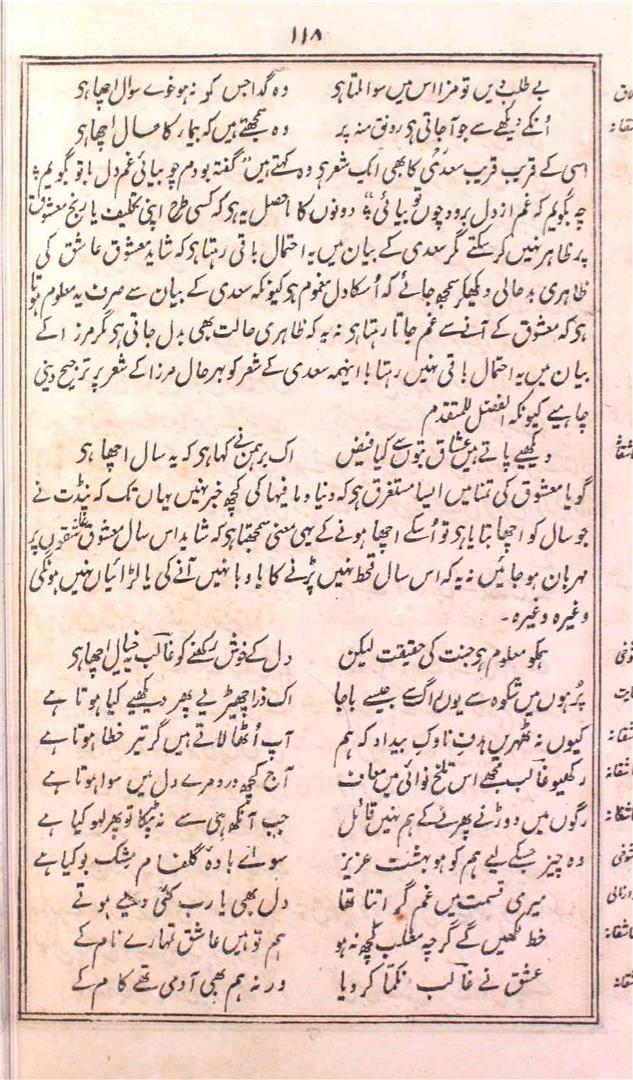 ۱۱۸
بے طلب دیں تو مزا اس میں سوا ملتا ہی وہ گدا جس کو نہ ہو خوے سوال اچھا ہی
اُنکے دیکھے سے جو آ جاتی ہی رونق منہ پر وہ سمجھتے ہیں کہ بیمار کا حال اچھا ہی
اسی کے قریب قریب سعدی کا بھی ایک شعر ہی وہ کہتے ہیں "گفتہ بودم چو بیائی غم دل با تو بگویم؛
چہ بگویم کہ غم از دل برود چوں تو بیائی" دونوں کا ماحصل یہ ہی کہ کسی طرح اپنی تکلیف یا رنج معشوق
پر ظاہر نہیں کر سکتے مگر سعدی کے بیان میں یہ احتمال باقی رہتا ہی کہ شاید معشوق عاشق کی
ظاہری بدحالی دیکھکر سمجھ جائے کہ اُسکا دل مغموم ہی کیونکہ سعدی کے بیان سے صرف یہ معلوم ہوتا
ہی کہ معشوق کے آنے سے غم جاتا رہتا ہی نہ یہ کہ ظاہری حالت بھی بدل جاتی ہی مگر مرزا کے
بیان میں یہ احتمال باقی نہیں رہتا با اینہمہ سعدی کے شعر کو بہرحال مرزا کے شعر پر ترجیح دینی
چاہیے کیونکہ الفضل للمتقدم
دیکھیے پاتے ہیں عشاق بتوں سے کیا فیض اک برہمن نے کہا ہی کہ یہ سال اچھا ہی
گویا معشوق کی تمنا میں ایسا مستغرق ہی کہ دنیا و ما فیہا کی کچھ خبر نہیں یہاں تک کہ پنڈت نے
جو سال کو اچھا بتایا ہی تو اُسکے اچھا ہونے کے یہی معنی سمجھتا ہی کہ شاید اس سال معشوق عاشقوں پر
مہربان ہو جائیں نہ یہ کہ اس سال قحط نہیں پڑنے کا یا وبا نہیں آنے کی یا لڑائیاں نہیں ہونگی
وغیرہ وغیرہ۔
ہمکو معلوم ہی جنت کی حقیقت لیکن دل کے خوش رکھنے کو غالب یہ خیال اچھا ہی
پُر ہوں میں شکوہ سے یوں راگ سے جیسے باجا اک ذرا چھیڑیے پھر دیکھیے کیا ہوتا ہے
کیوں نہ ٹھہریں ہدف ناوک بیداد کہ ہم آپ اُٹھا لاتے ہیں گر تیر خطا ہوتا ہے
رکھیو غالب مجھے اس تلخ نوائی میں معاف آج کچھ درد مرے دل میں سوا ہوتا ہے
رگوں میں دوڑنے پھرنے کے ہم نہیں قائل جب آنکھ ہی سے نہ ٹپکا تو پھر لہو کیا ہے
وہ چیز جسکے لیے ہم کو ہو بہشت عزیز سوائے بادۂ گلفام مشک بو کیا ہے
میری قسمت میں غم گر اتنا تھا دل بھی یا رب کئی دیے ہوتے
خط لکھیں گے گرچہ مطلب کچھ نہ ہو ہم تو ہیں عاشق تمہارے نام کے
عشق نے غالب نکما کر دیا ورنہ ہم بھی آدمی تھے کام کے